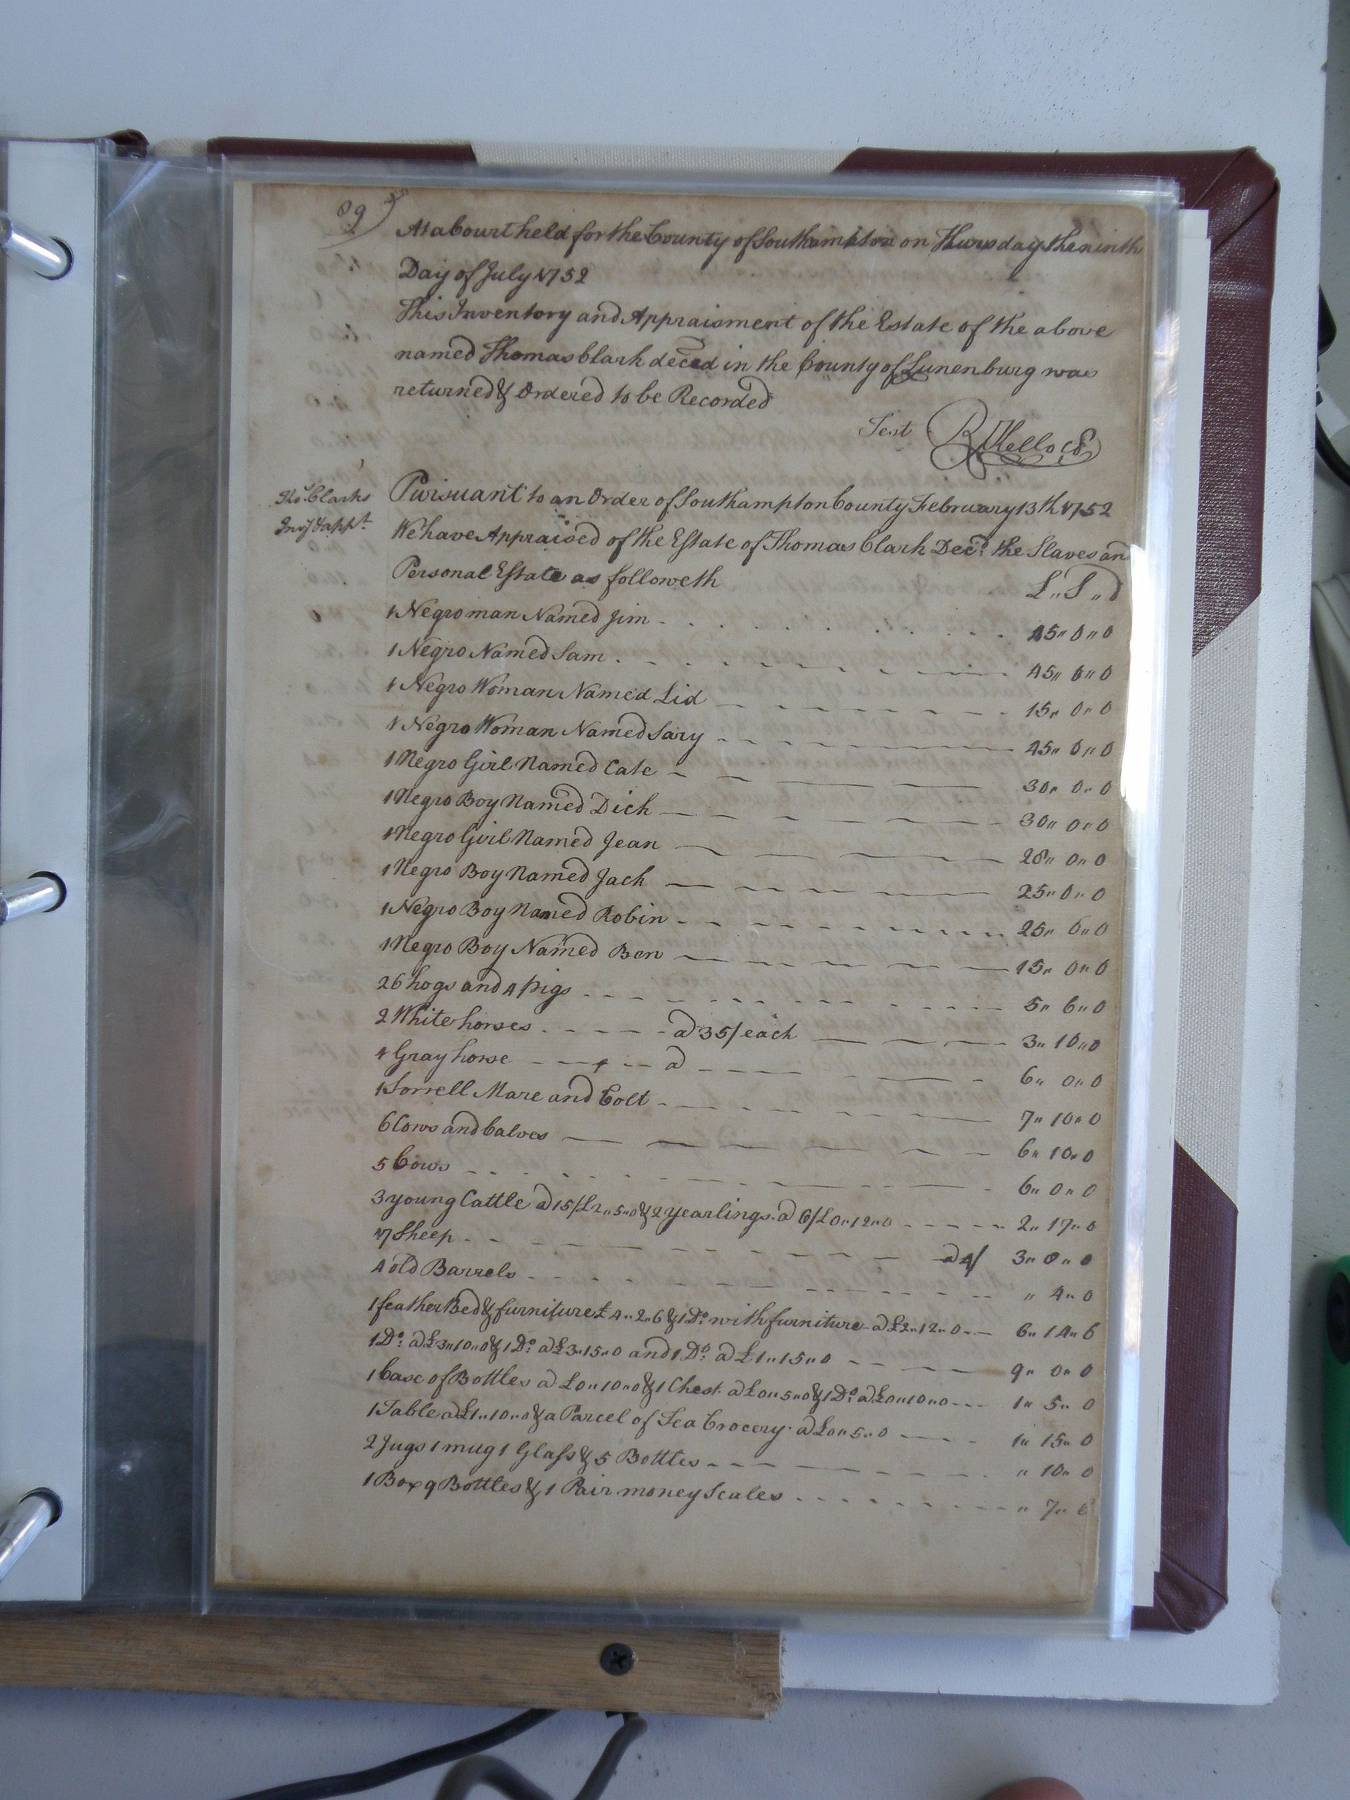 89)
At a Court held for the County of Southampton on Thursday the ninth
Day of July 1752
This Inventory and Appraisment of the Estate of the above
named Thomas Clark deced in the County of Lunenburg was
returned & Ordered to be Recorded
Test R Kello Cl
Tho.s Clarks
Inv.y & app.t
Pursuant to an Order of Southampton County February 13th 1752
We have Appraised of the Estate of Thomas Clark Dec.d the Slaves and
Personal Estate as followeth £ " S " d
1 Negro man Named Jim - - - 45 " 0 " 0
1 Negro Named Sam - - - 45 " 0 " 0
1 Negro Woman Named Lid - - - 15 " 0 " 0
1 Negro Woman Named Sary - - - 45 " 0 " 0
1 Negro Girl Named Cate - - - 30 " 0 " 0
1 Negro Boy Named Dick - - - 30 " 0 " 0
1 Negro Girl Named Jean - - - 28 " 0 " 0
1 Negro Boy Named Jack - - - 25 " 0 " 0
1 Negro Boy Named Robin - - - 25 " 0 " 0
1 Negro Boy Named Ben - - - 15 " 0 " 0
26 hogs and 4 pigs - - - 5 " 6 " 0
2 White horses - - - a 35/ each - - - 3 " 10 " 0
1 Gray horse - - - a - - - 6 " 0 " 0
1 Sorrell Mare and Colt - - - 7 " 10 " 0
6 Cows and Calves - - - 6 " 10 " 0
5 Cows - - - 6 " 0 " 0
3 young Cattle a 15/ £2 " 5 " 0 & 2 yearlings a 6/ £0 " 12 " 0 - - - 2 " 17 " 0
Sheep - - - a 4/ 3 " 8 " 0
4 old Barrels - - - " 4 " 0
1 feather Bed & furniture £4 " 2 " 6 & 1 D.o with furniture a £2 " 12 " 0 - - - 6 " 14 " 6
1 D.o a £3 " 10 " 0 & 1 D.o a £3 " 15 " 0 and 1 D.o a £1 " 15 " 0 - - - 9 " 0 " 0
1 Case of Bottles a £0 " 10 " 0 & 1 Chest a £0 " 5 " 0 & 1 D.o a £0 " 10 " 0 - - - 1 " 5 " 0
1 Table a £1 " 10 " 0 & a Parcel of Tea Crocery a £0 " 5 " 0 - - - 1 " 15 " 0
2 Jugs 1 mug 1 Glass & 5 Bottles - - - " 10 " 0
1 Box 9 Bottles & 1 Pair money Scales - - - " 7 " 6